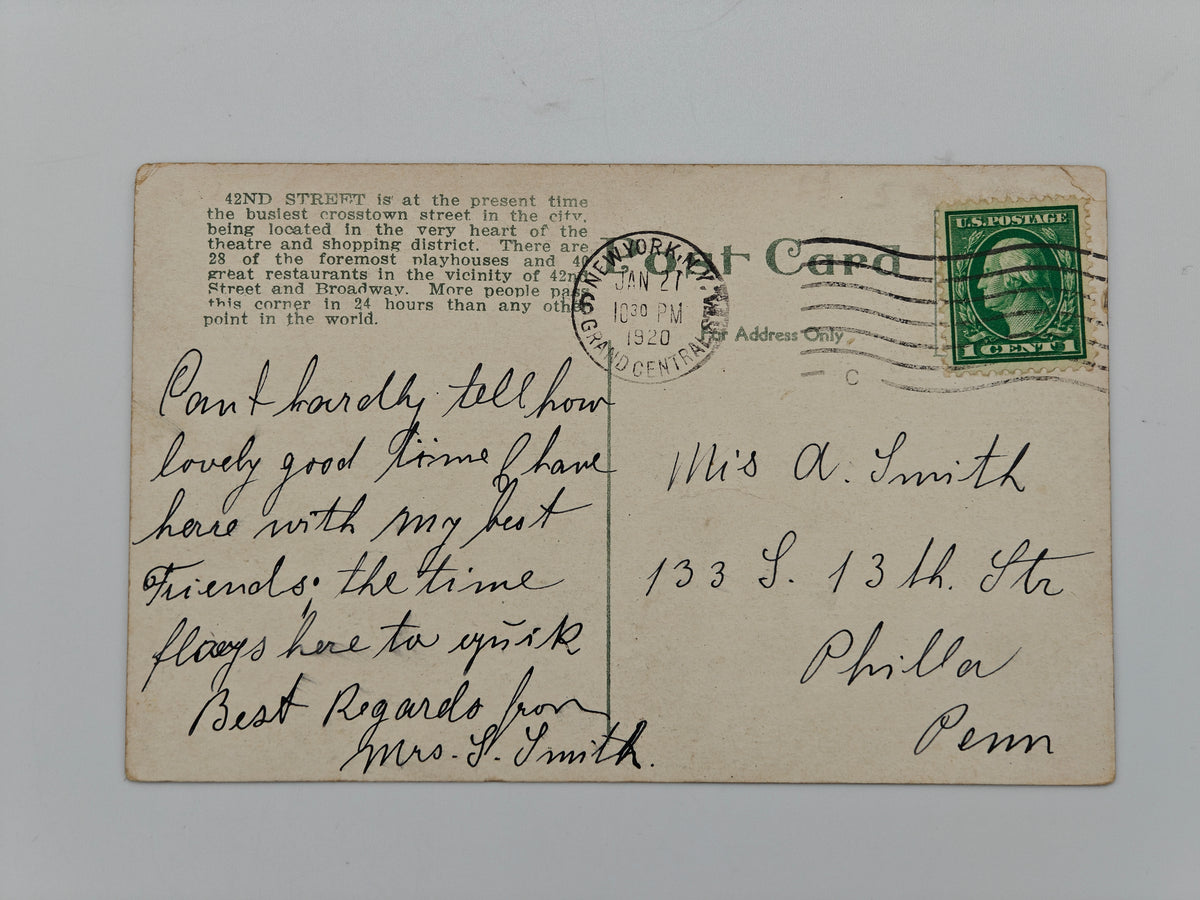 42ND STREET is at the present time
the busiest crosstown street in the city,
being located in the very heart of the
theatre and shopping district. There are
28 of the foremost playhouses and 40
great restaurants in the vicinity of 42nd
Street and Broadway. More people pass
this corner in 24 hours than any other
point in the world.
Post Card
For Address Only
NEW YORK, N.Y.
JAN 21
10 30 PM
1920
GRAND CENTRAL STA.
C
U.S. POSTAGE
1 CENT 1
Cant hardly tell how
lovely good time I have
herre with my best
Friends; the time
flaeys here to quik
Best Regards from
Mrs. S. Smith.
Mis A. Smith
133 S. 13 th. Str
Philla
Penn